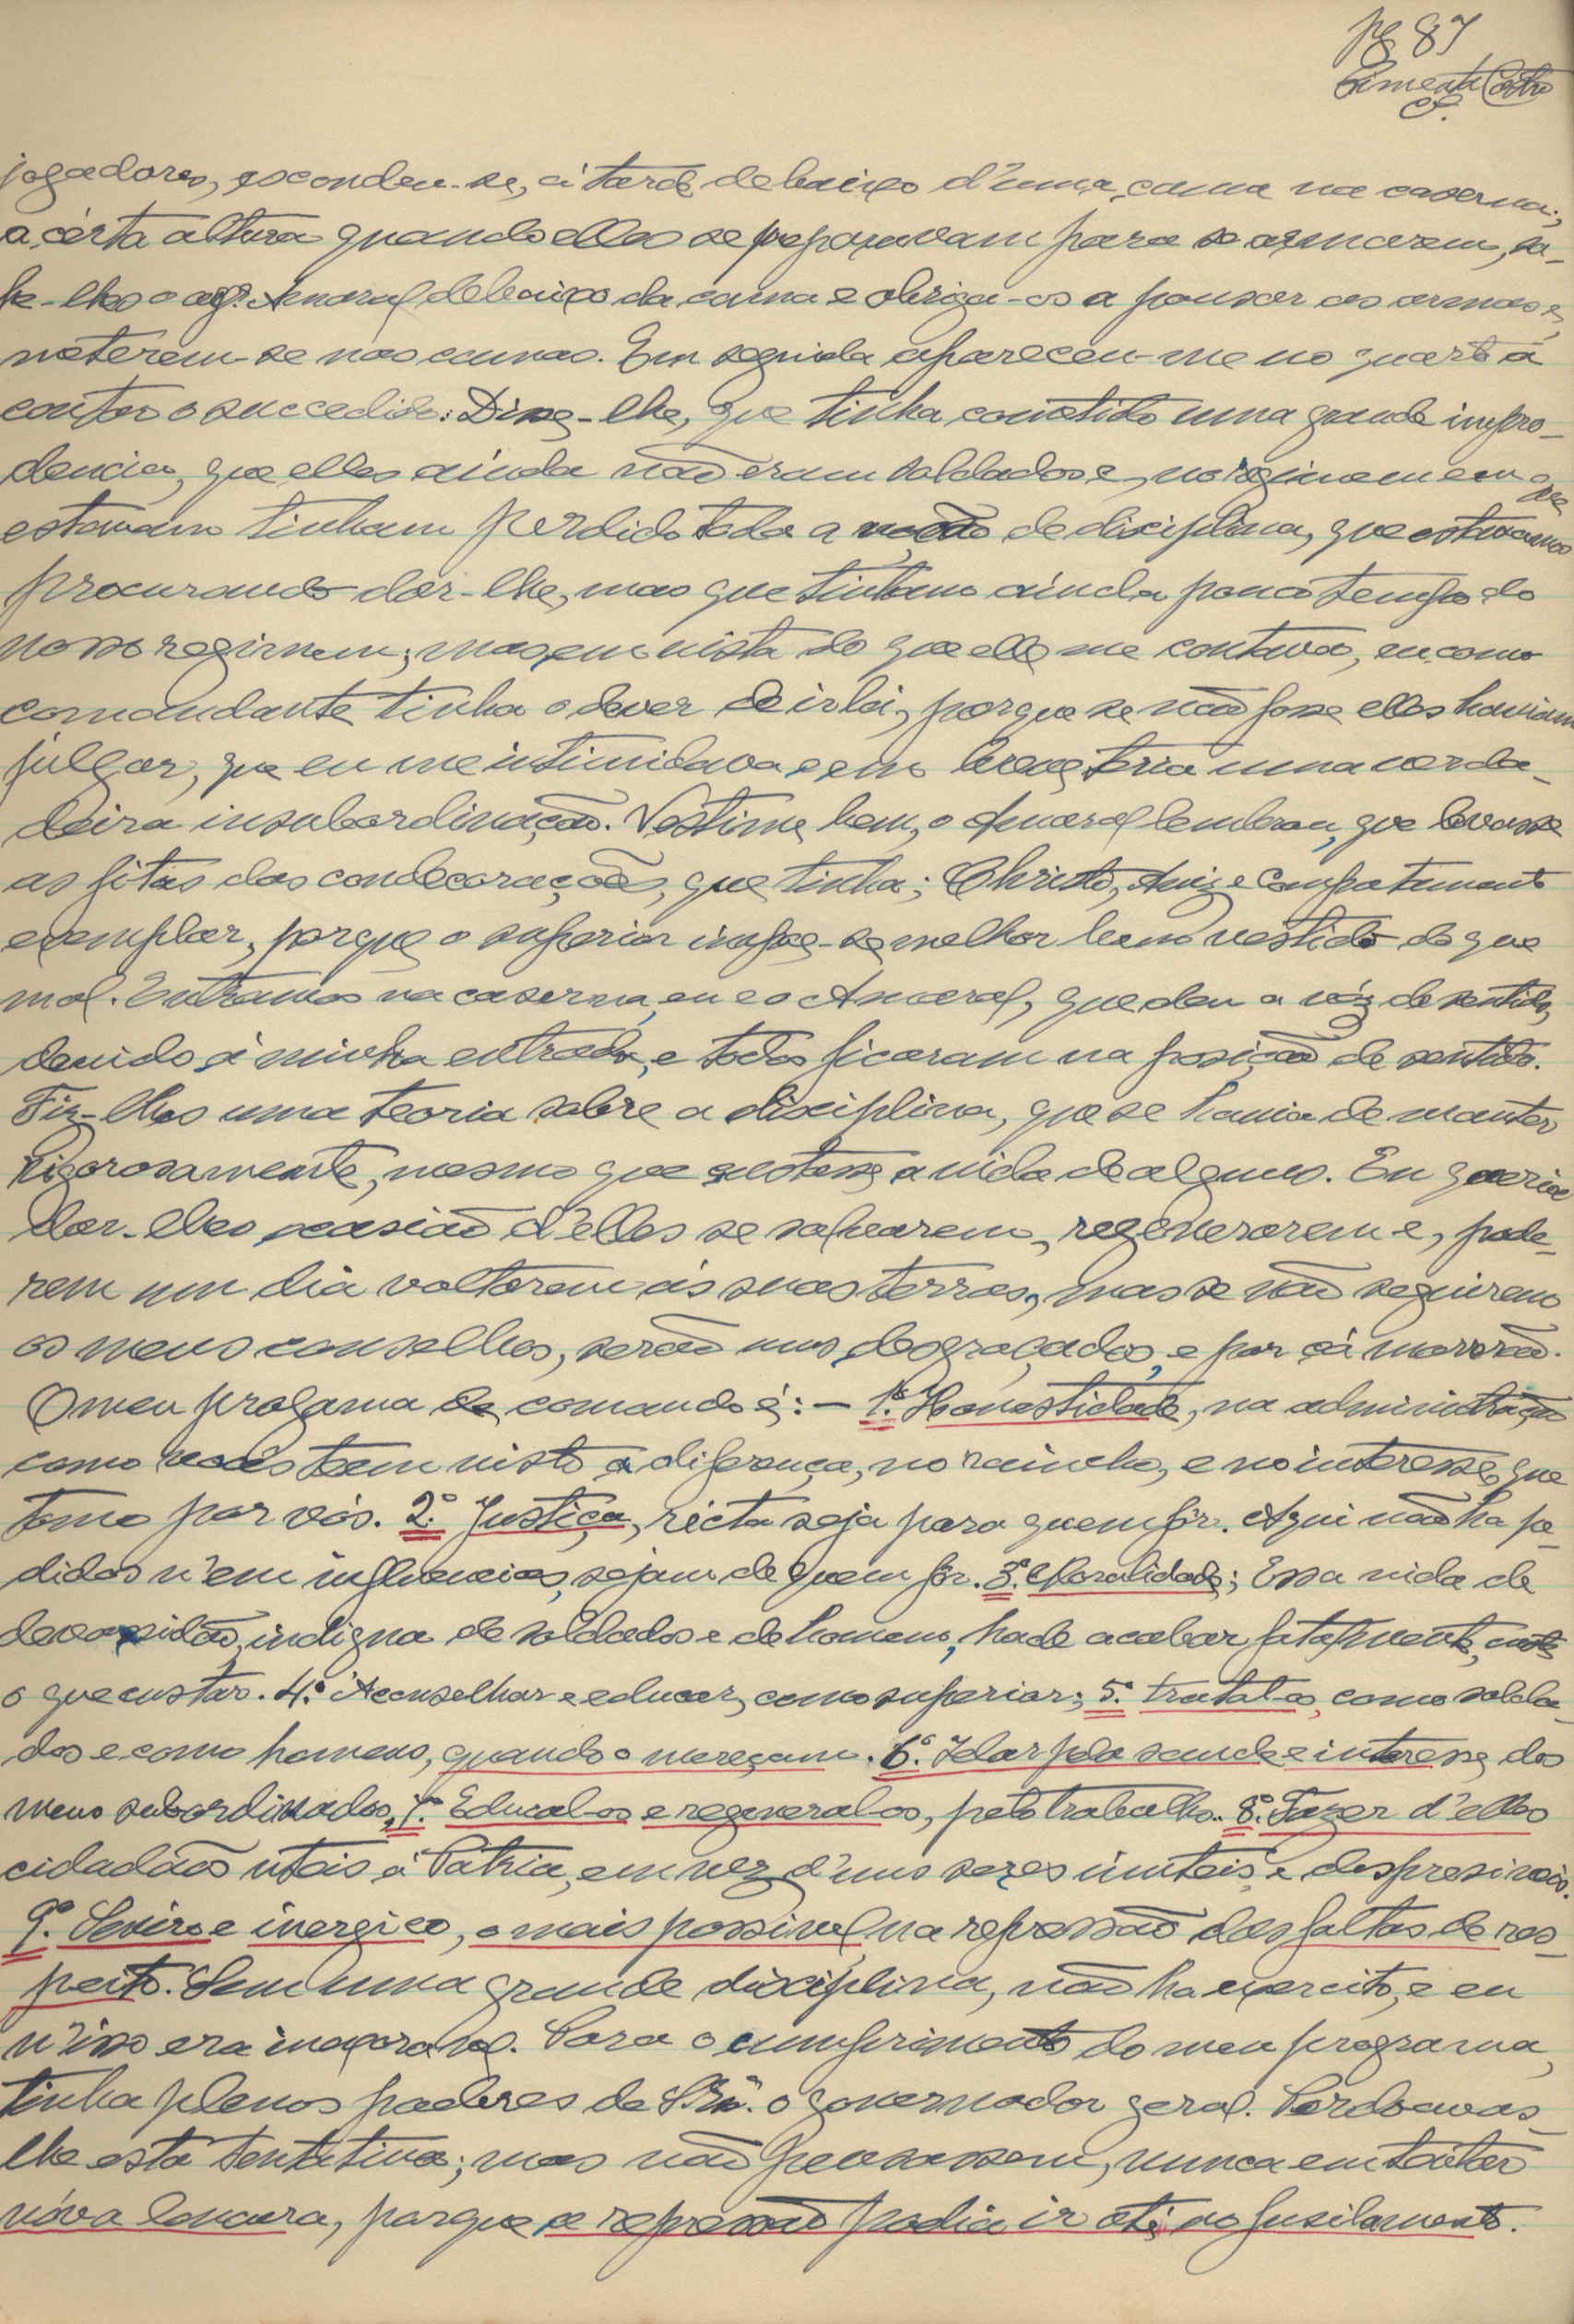 pg 87
Pimenta Castro
jogadores, escondeu-se, á tarde debaixo d'uma cama na caserna;
a cérta altura quando elles se preparavam para se armarem, sa-
he-lhes o agr. Amaral debaixo da cama e obriga-os a pousar as armas e
meterem-se nas camas. Em seguida apareceu-me no quarto a
contar o succedido: Disse-lhe, que tinha cometido uma grande impro-
dencia, que elles ainda não eram soldados e, no regimem em que
estavam tinham perdido toda a noção de disciplina, que estavamos
procurando dar-lhe, mas que tinham ainda pouco tempo do
nosso regimem; mas, em vista do que elle me contava, eu como
comandante tinha o dever de ir lá, porque se não fosse elles haviam
julgar, que eu me intimidava e em breve teria uma verda-
deira insubordinação. Vestime bem, o Amaral lembrou, que levasse
as fitas das condecorações, que tinha; Christo, Aviz e Compatamento
exemplar, porque o superior impõe-se melhor bem vestido do que
mal. Entramos na caserna, eu e o Amaral, que deu a vóz de sentido,
devido á minha entrada, e todos ficaram na posição de sentido.
Fiz-lhes uma teoria sobre a disciplina, que se havia de manter
rigorosamente, mesmo que custasse a vida de alguns. Eu queria
dar-lhes ocasião d'elles se salvarem, regenerarem e, pode-
rem um dia voltarem ás suas terras, mas se não seguirem
os meus conselhos, serão uns desgraçados, e por cá morrerão.
O meu progama de comando é: - 1.º Honestidade, na administração
como vocês teem visto a diferença, no rancho, e no interesse, que
tomo por vós. 2.º Justiça, récta seja para quem fôr. Aqui não ha pe-
didos n'em influencias, sejam de quem fôr. 3.º Moralidade; Essa vida de
devassidão, indigna de soldados e de homens, hade acabar fatalmente, custe
o que custar. 4.º Aconselhar e educar, como superior; 5.º tratal-os, como solda-
dos e como homens, quando o mereçam. 6.º Zelar pela saude e interesse, dos
meus subordinados, 7.º Educal-os e regeneral-os, pelo trabalho. 8.º Fazer d'elles
cidadãos uteis á Patria, em vez d'uns seres inuteis e despresiveis.
9.º Sevéro e inergico, o mais possivel na repressão das faltas de res-
peito. Sem uma grande disciplina, não ha exercito, e eu
n'isso era inexoravel. Para o cumprimento do meu programa,
tinha plenos poderes de S. Ex.ª o governador geral. Perdoava-
lhe esta tentativa; mas não pensassem, nunca em tentar
nóva loucura, porque a repressão podia ir até ao fusilamento.